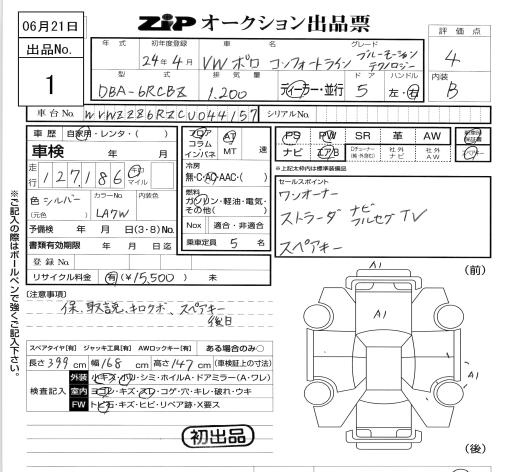 06月21日
ZIP オークション出品票
出品No.
1
年式 初年度登録 車名 グレード 評価点
24年4月 VW ポロ コンフォートライン ブルーモーション テクノロジー 4
型式 排気量 ドア ハンドル 内装
DBA-6RCBZ 1.200 ディーラー・並行 5 左・右 B
車台No. WVWZZZ6RZCU044157 シリアルNo.
車歴 自家用・レンタ・( )
フロア コラム インパネ AT MT 速
PS PW SR 革 AW
ナビ エアB Dチューナー(純・外含む) 社外ナビ 社外AW
スペアキー
※上記太枠内は標準装備品
車検 年 月
冷房
無・C・AC・AAC・( )
走行 127,186 キロ マイル
燃料
ガソリン・軽油・電気・その他( )
色 シルバー カラーNo. 内装色
(元色) LA7W
Nox 適合・非適合
予備検 年 月 日(3・8)No.
書類有効期限 年 月 日迄
乗車定員 5 名
登録No.
リサイクル料金 有(¥15,500) 未
セールスポイント
ワンオーナー
ストラーダ ナビ フルセグTV
スペアキー
※ご記入の際はボールペンで強くご記入下さい。
(注意事項)
保、取説、キロクボ、スペアキー
後日
(前)
A1
A1
A1
(後)
スペアタイヤ[有] ジャッキ工具[有] AWロックキー[有] ある場合のみ○
長さ 399 cm 幅 168 cm 高さ 147 cm (車検証上の寸法)
検査記入
外装 小キズ・凹・シミ・ホイルA・ドアミラー(A・ワレ)
室内 ヨゴレ・キズ・スレ・コゲ・穴・キレ・破れ・ウキ
FW トビ石・キズ・ヒビ・リペア跡・X要ス
初出品